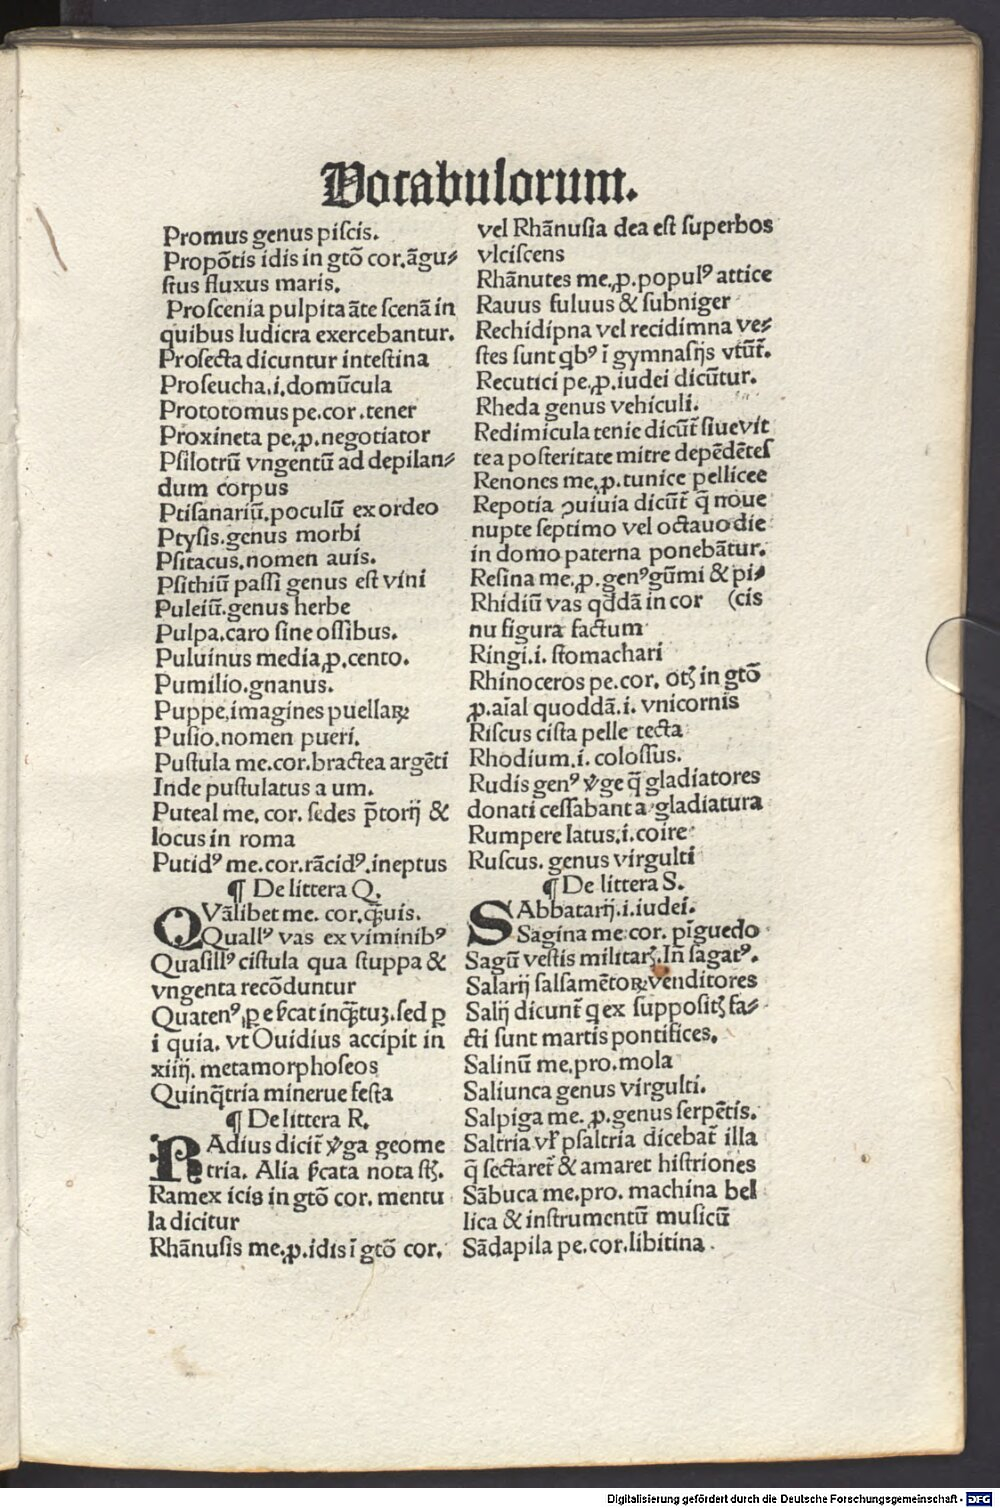 Vocabulorum.
Promus genus piſcis.
Propõtis idis in gtõ cor.ãgu⸗
ſtus fluxus maris.
Proſcenia pulpita ãte ſcenã in
quibus ludicra exercebantur.
Proſecta dicuntur inteſtina
Proſeucha.i.domũcula
Prototomus pe.cor.tener
Proxineta pe.ꝓ.negotiator
Pſilotrũ vngentũ ad depilan⸗
dum corpus
Ptiſanariũ.poculũ ex ordeo
Ptyſis.genus morbi
Pſitacus.nomen auis.
Pſithiũ paſſi genus eſt vini
Puleiũ.genus herbe
Pulpa.caro ſine oſſibus.
Puluinus media.ꝓ.cento.
Pumilio.gnanus.
Puppe.imagines puellaꝝ
Puſio.nomen pueri.
Puſtula me.cor.bractea argẽti
Inde puſtulatus a um.
Puteal me. cor. ſedes p̃torij &
locus in roma
Putidꝰ me.cor.rãcidꝰ.ineptus
¶ De littera Q.
QVãlibet me. cor.q̃uis.
Quallꝰ vas ex viminibꝰ
Quaſillꝰ ciſtula qua ſtuppa &
vngenta recõduntur
Quatenꝰ.ꝑ e ſ̃cat inq̃tuꝫ.ſed ꝓ
i quia. vt Ouidius accipit in
xiiij. metamorphoſeos
Quinq̃tria minerue feſta
¶ De littera R.
RAdius dicit̃ ṽga geome
tria. Alia ſ̃cata nota ſtꝫ.
Ramex icis in gtõ cor. mentu
la dicitur
Rhãnuſis me.ꝓ.idis ĩ gtõ cor.
vel Rhãnuſia dea eſt ſuperbos
vlciſcens
Rhãnutes me.ꝓ.populꝰ attice
Rauus fuluus & ſubniger
Rechidipna vel recidimna ve⸗
ſtes ſunt qbꝰ ĩ gymnaſijs vtũt̃.
Recutici pe.ꝓ.iudei dicũtur.
Rheda genus vehiculi.
Redimicula tenie dicũt̃ ſiue vit
tea poſteritate mitre depẽdẽtes
Renones me.ꝓ.tunice pellicee
Repotia ꝯuiuia dicũt̃ q̃ noue
nupte ſeptimo vel octauo die
in domo paterna ponebãtur.
Reſina me.ꝓ.genꝰ gũmi & pi⸗
Rhidiũ vas qddã in cor (cis
nu figura factum
Ringi.i. ſtomachari
Rhinoceros pe.cor. otꝫ in gtõ
ꝓ.aĩal quoddã.i. vnicornis
Riſcus ciſta pelle tecta
Rhodium.i. coloſſus.
Rudis genꝰ ṽge q̃ gladiatores
donati ceſſabant a gladiatura
Rumpere latus.i.coire
Ruſcus. genus virgulti
¶ De littera S.
SAbbatarij.i.iudei.
Sagina me.cor. pĩguedo
Sagũ veſtis militarꝫ.Iñ ſagatꝰ.
Salarij ſalſamẽtoꝝ venditores
Salij dicunt̃ q ex ſuppoſitꝫ fa⸗
cti ſunt martis pontifices.
Salinũ me.pro.mola
Saliunca genus virgulti.
Salpiga me. ꝓ.genus ſerpẽtis.
Saltria vľ pſaltria dicebat̃ illa
q̃ ſectaret̃ & amaret hiſtriones
Sãbuca me.pro. machina bel
lica & inſtrumentũ muſicũ
Sãdapila pe.cor.libitina.
Digitalisierung gefördert durch die Deutsche Forschungsgemeinschaft - DFG